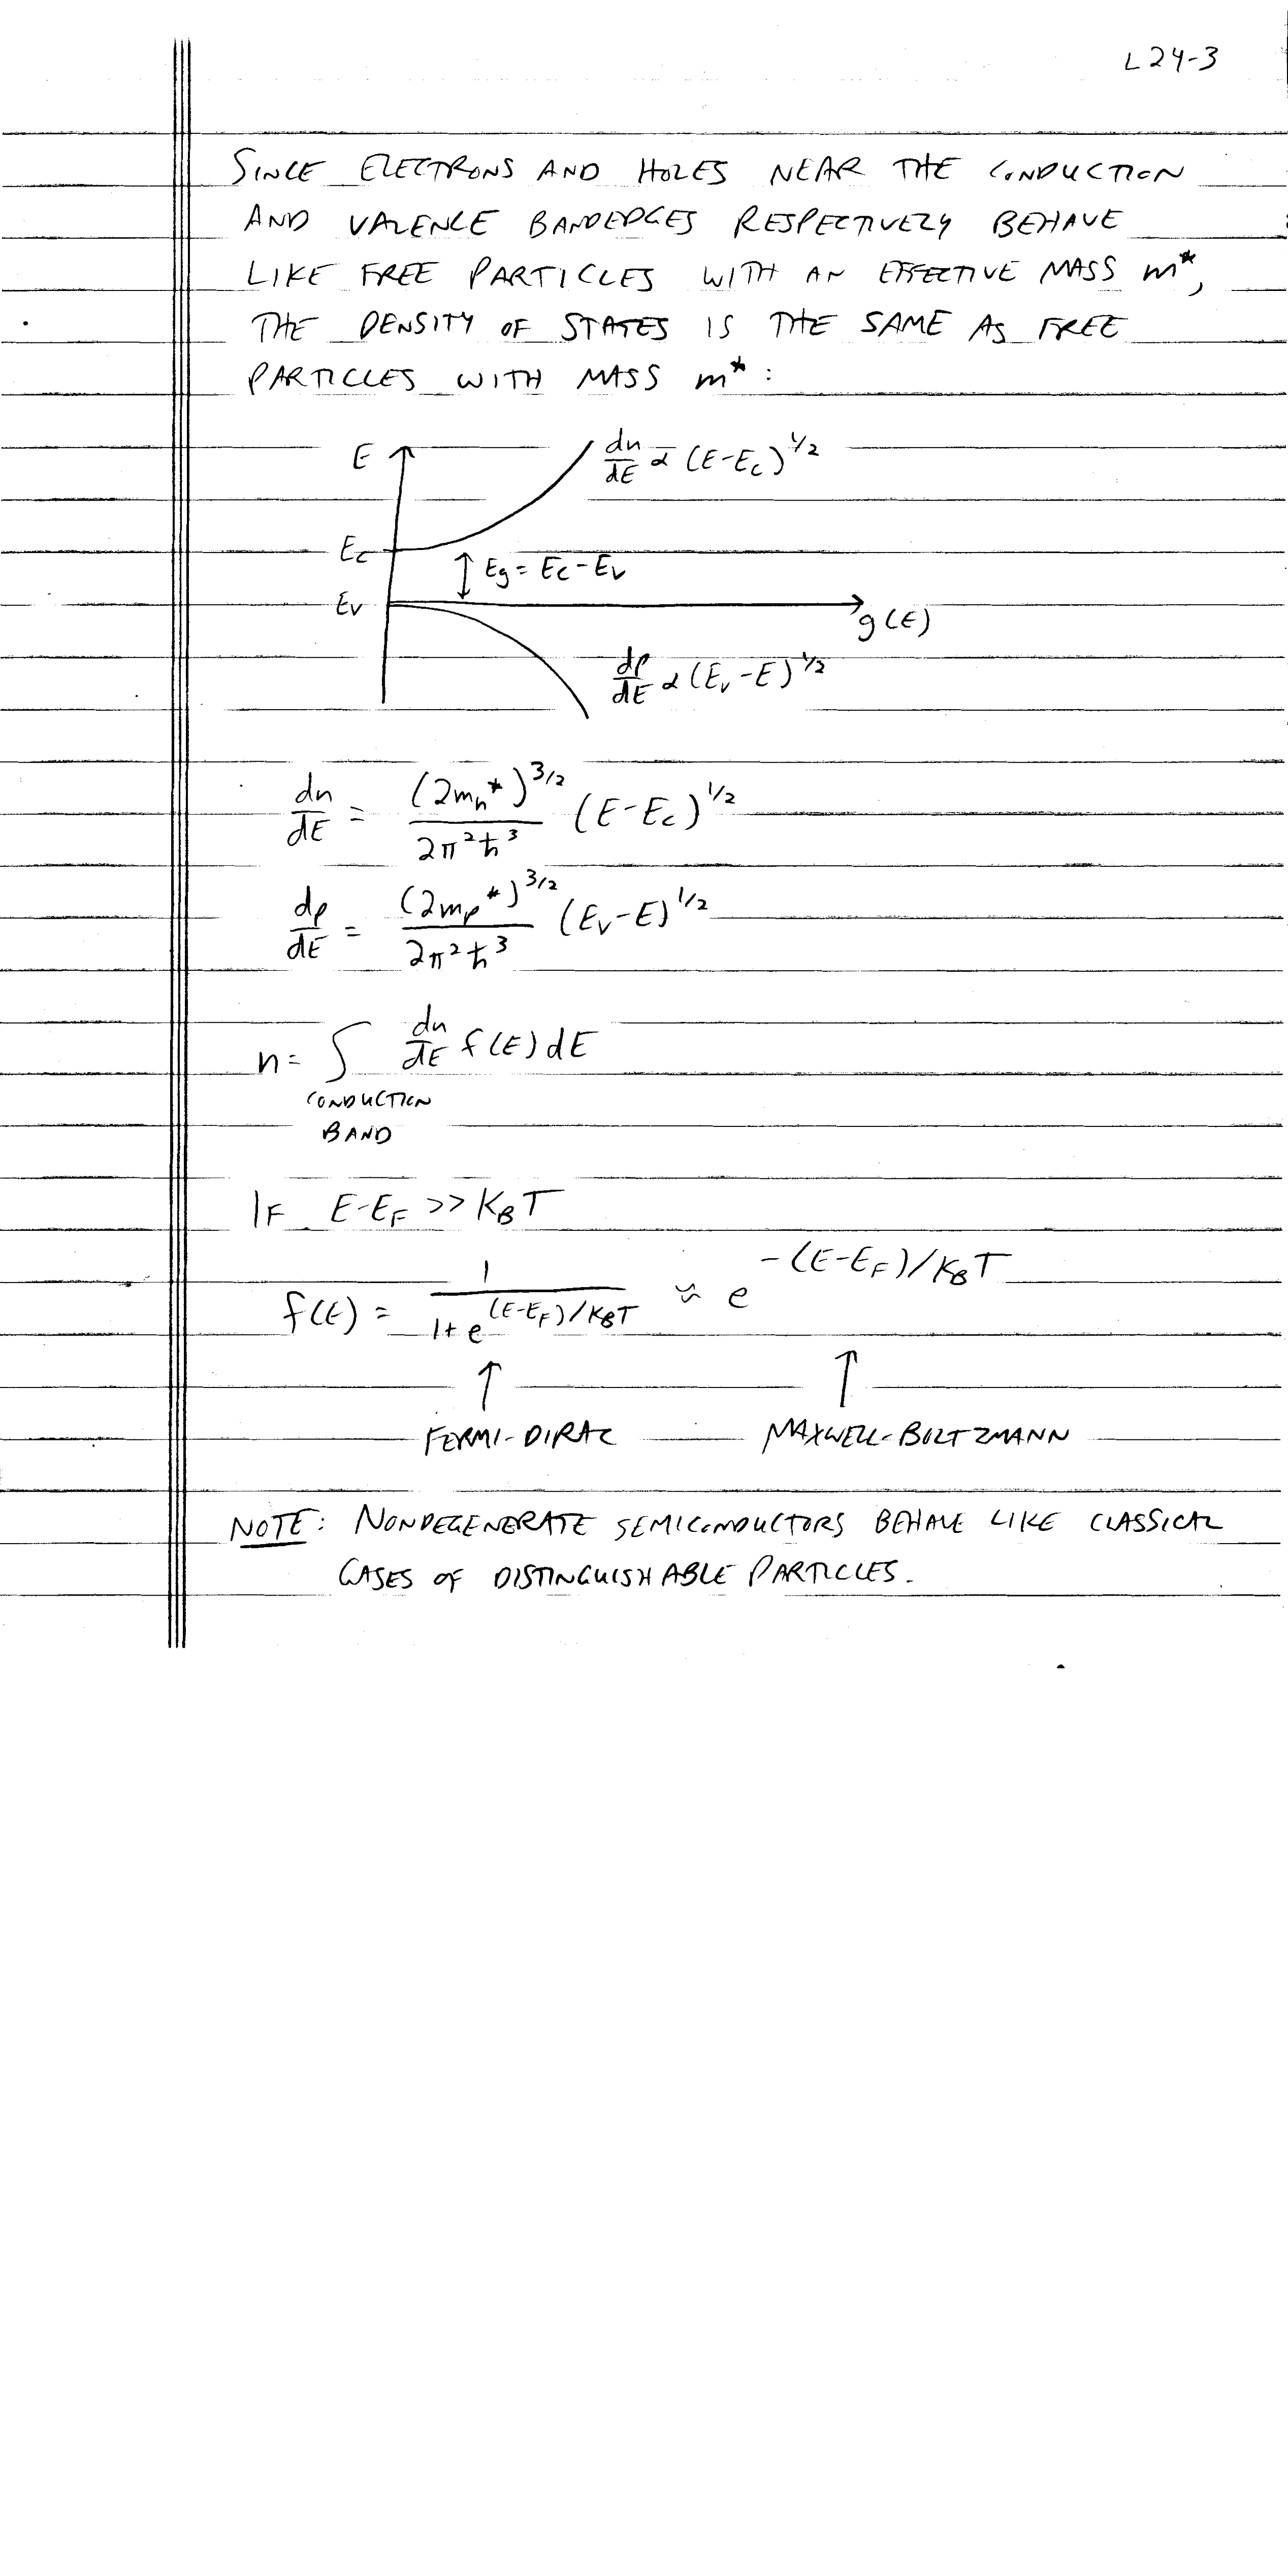 L24-3
SINCE ELECTRONS AND HOLES NEAR THE CONDUCTION
AND VALENCE BANDEDGES RESPECTIVELY BEHAVE
LIKE FREE PARTICLES WITH AN EFFECTIVE MASS m*,
THE DENSITY OF STATES IS THE SAME AS FREE
PARTICLES WITH MASS m* :
E
dn/dE ∝ (E-Ec)^1/2
Ec
Eg = Ec - Ev
Ev
g(E)
dp/dE ∝ (Ev-E)^1/2
dn/dE = (2mn*)^3/2 / 2π²ℏ³ (E-Ec)^1/2
dp/dE = (2mp*)^3/2 / 2π²ℏ³ (Ev-E)^1/2
n = ∫ dn/dE f(E) dE
CONDUCTION
BAND
IF E-EF >> KBT
f(E) = 1 / 1+e^(E-EF)/KBT ≈ e^-(E-EF)/KBT
↑ ↑
FERMI-DIRAC MAXWELL-BOLTZMANN
NOTE: NONDEGENERATE SEMICONDUCTORS BEHAVE LIKE CLASSICAL
GASES OF DISTINGUISHABLE PARTICLES.